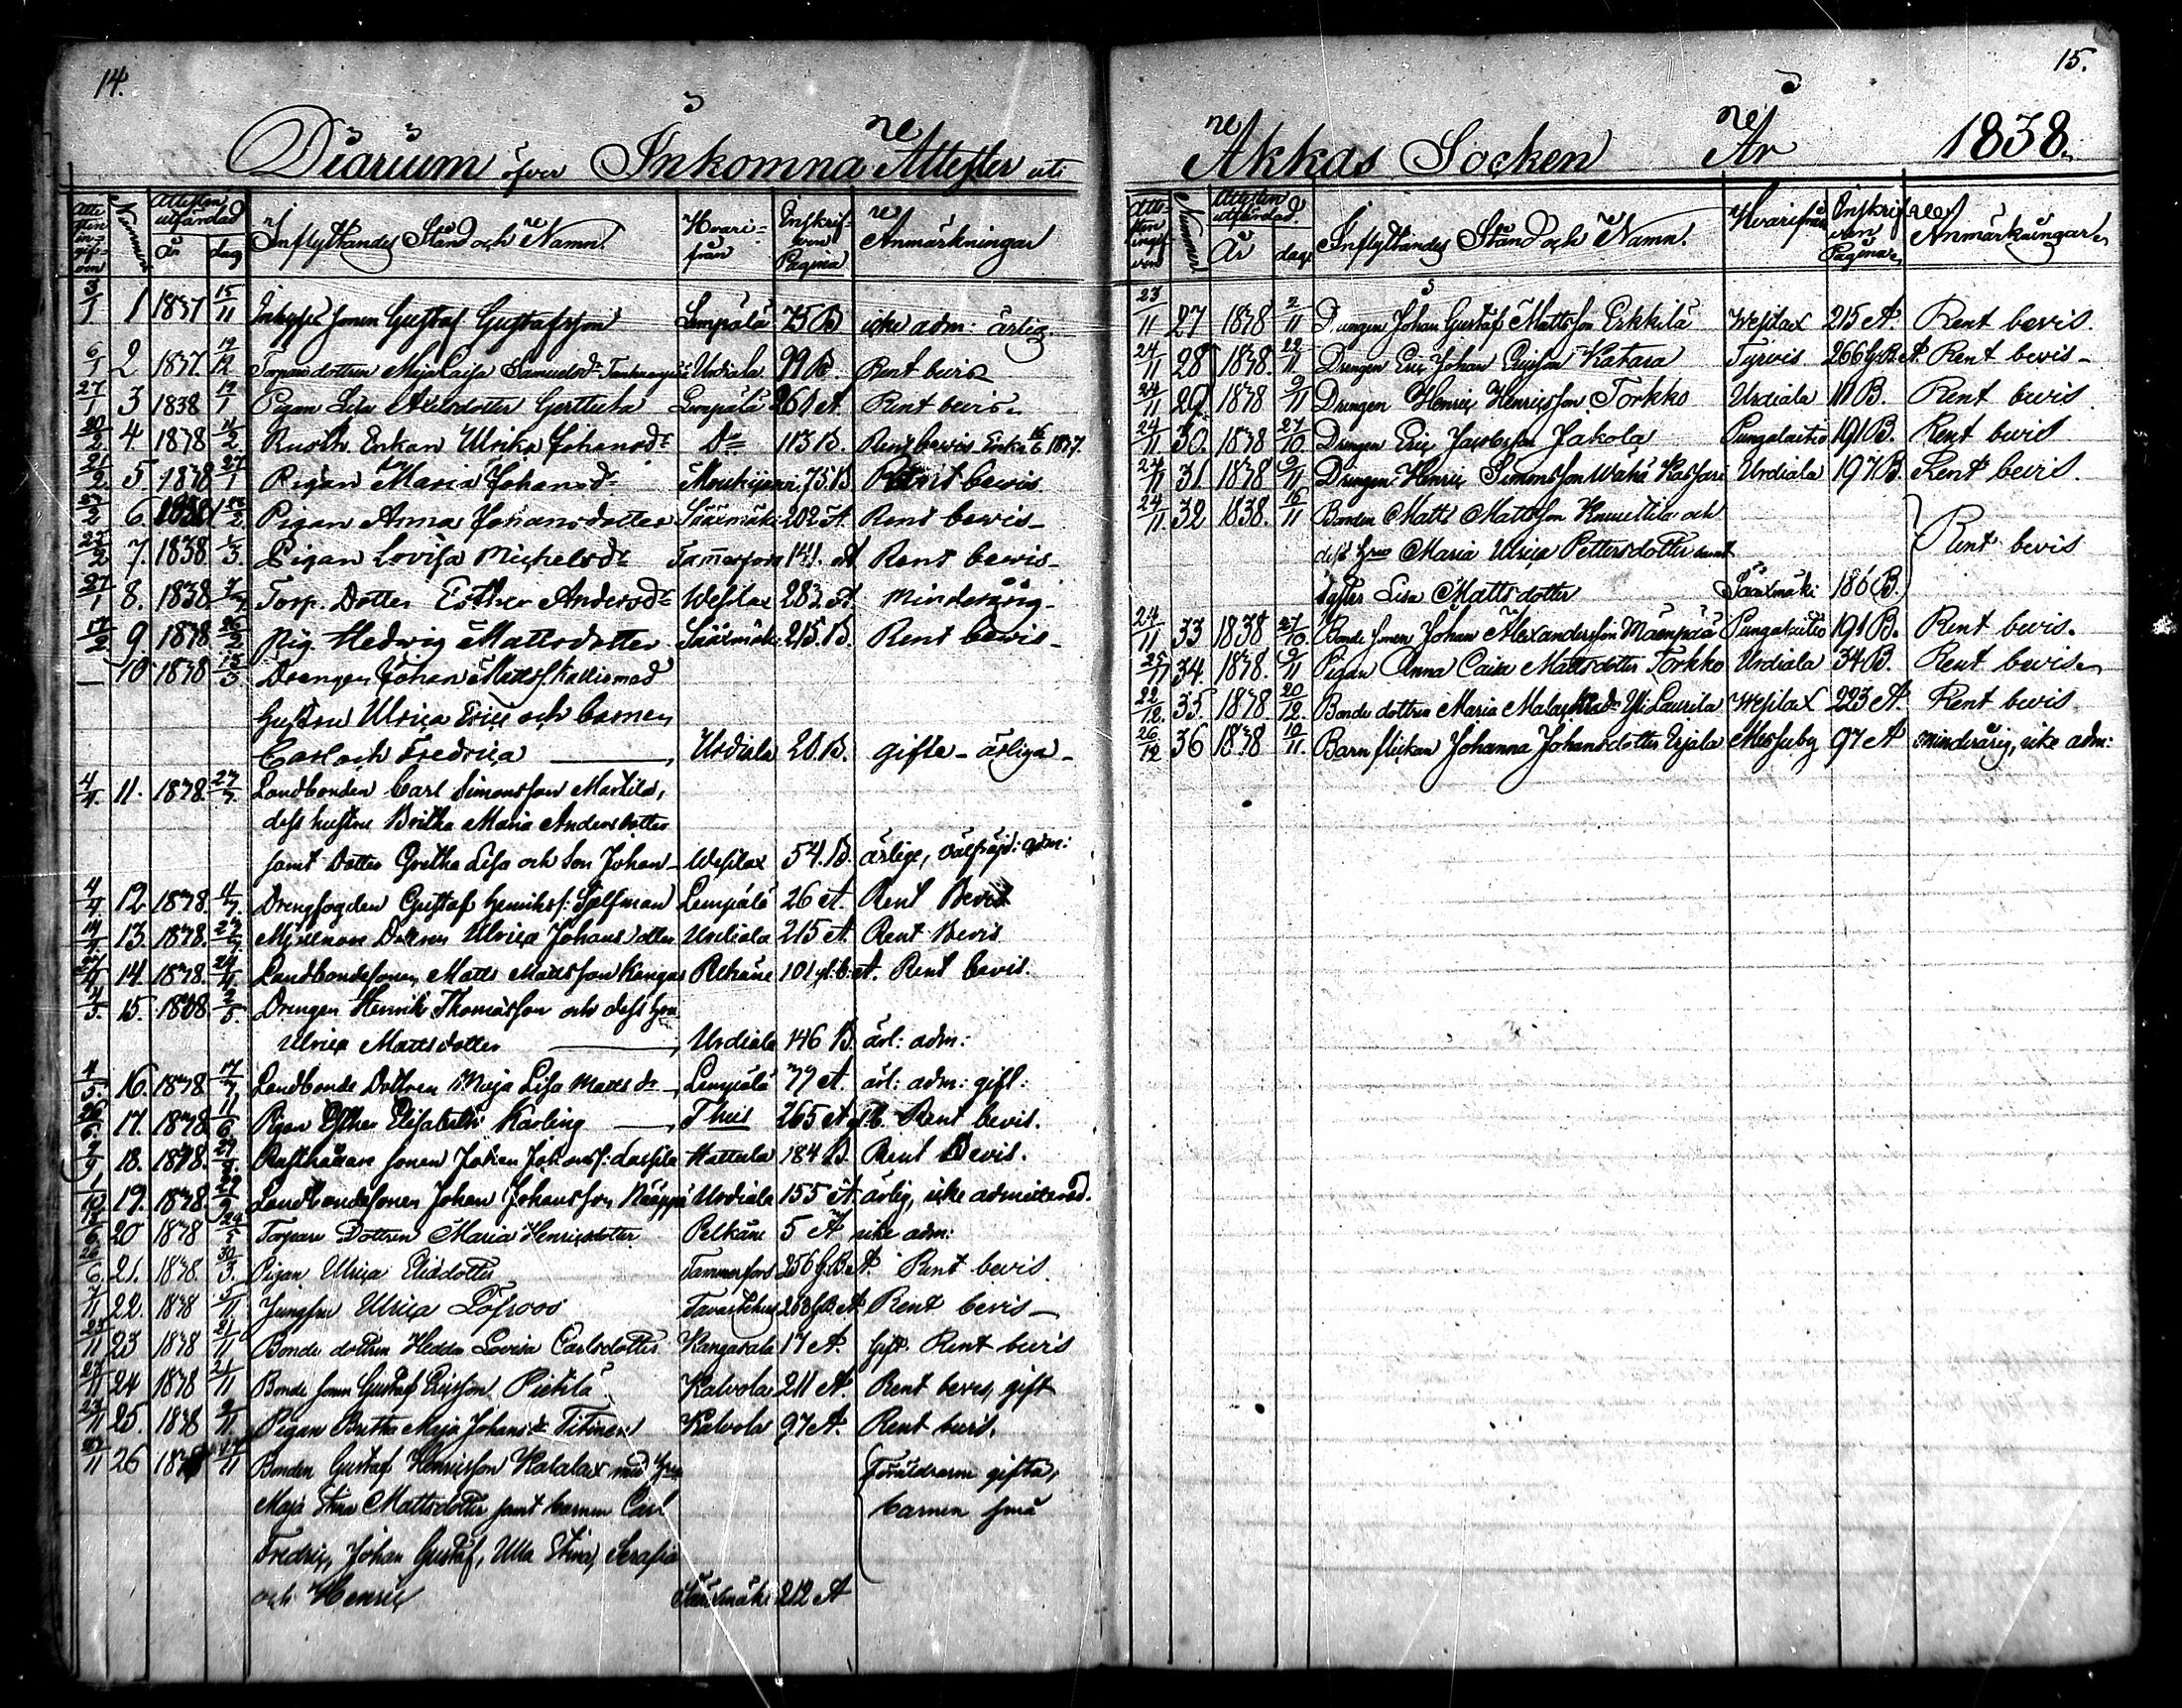 14.
Diarium öfver Inkomna Attester uti
Attesten ingifven Nummer Attesten utfärdad År dag Inflyttandes Stånd och Namn. Hvarifrån Inskrifven Pagina Anmärkningar
3/1 1 1837 15/11 Inhyses sonen Gustaf Gustafsson Lempälä 75 B icke adm: ärlig.
6/1 2 1837. 19/12 Torpare dottren Maja Caisa Samuelsdr Urdiala 99 B. Rent bevis
27/1 3 1838 19/1 Pigan Lisa Axelsdotter Gerttula Lempälä 261 A. Rent bevis.
20/2 4 1838 11/2 Rusth. Enkan Ulrika Johansdr Do 113 B. Rent bewis Enka 16/6 1837.
21/2 5 1838 27/1 Pigan Maria Johansdr 75. B Rent bewis.
27/2 6. 1838 Pigan Anna Johansdotter Sääxmäki 202 A. Rent bewis
7. 1838 1/3. Pigan Lovisa Michelsdr Tammerfors 141. A Rent bewis
27/1 8. 1838 Torp. Dotter Esther Andersdr Wesilax 283 A. Minderårig
17/2 9 1838 26/2 Pig. Hedwig Mattsdotter Sääxmäki 215. B Rent bewis
— 10 1838 15/3. Drengen Johan Mattss. Kallio med
hustru Ulrica Erics och barnen
Carl och Fredrica — Urdiala 20. B. gifte - ärliga
4/4. 11. 1838. 27/3. Landbonden Carl Simonsson Marttila,
dess hustru Britha Maria Andersdotter
samt Dotter Gretha Lisa och Son Johan Wesilax 54. B. ärlige, välfräjd: adm:
4/4 12 1838. Drengfogden Gustaf Henrikss: Sjelfman Lempälä 26 A. Rent Bevis
14/4 13. 1838. Dottren Ulrica Johansdotter Urdiala 215 A. Rent Bevis
14. 1838. 24/4. Landbondesonen Matts Mattsson Kangas Pelkäne 101 g.b. A. Rent bevis.
4/5. 15. 1838 2/5. Drengen Henrik Thomasson och dess hru
Ulrica Mattsdotter — Urdiala 146 B. ärl: adm:
4/5. 16. 1838 17/4 Landbonde Dottren Maja Lisa Mattsdr Lempälä 79 A. ärl: adm: gift:
17. 1838 11/6 Pigan Esther Elisabeth Karling — Thus 265 A g.b. Rent bevis.
18. 1838. Rusthållare sonen Johan Johanss: Lassila Hattula 184 B. Rent Bevis.
1/10. 19. 1838. 29/9 Landbondesonen Johan Johansson Näppi Urdiala 155 A. ärlig, icke admitterad.
20 1838 24/5 Torpare Dottren Maria Henricsdotter Pelkäne 5 A icke adm:
26/6. 21. 1838. 30/3. Pigan Ulrica Eliædotter Tammerfors 256 G.B. A. Rent bevis.
22. 1838 5/11 Jungfru Ulrica Löfroos Tavastehus 258 G.B. A. Rent bevis
23/11 23 1838 21/11 Bonde dottren Hedda Lovisa Carlsdotter Kangasala 17 A. Gift. Rent bevis
24 1838 21/11 Bonde sonen Gustaf Ericsson Pietilä Kalvola 211 A. Rent bevis, gift
23/11 25. 1838 9/11. Pigan Britha Maja Johansdr Titinen Kalvola 97 A. Rent bevis.
26 1838 17/11 Bonden Gustaf Henricsson Kalalax med hru Föräldrarne gifta,
Maja Stina Mattsdotter samt barnen Carl barnen små
Fredric, Johan Gustaf, Ulla Stina, Serafia
och Henric Sääxmäki 212 A
15.
Akkas Socken År 1838.
Attesten ingifven Nummer Attesten utfärdad. År dag. Inflyttandes Stånd och Namn. Hvarifrån Inskrifven Pagina Anmärkningar
23/11 27 1838 2/11 Drengen Johan Gustaf Mattsson Erkkilä Wesilax 215 A. Rent bevis.
24/11 28 1838. 22/11 Drengen Eric Johan Ericsson Katara Tyrvis 266 G.B. A. Rent bevis
24/11 29. 1838 9/11 Drengen Henric Henricsson Torkko Urdiala 111 B. Rent bevis
24/11. 30. 1838 27/10. Drengen Eric Jacobsson Jakola Pungalaitio 191 B. Rent bevis
24/11 31. 1838 9/11 Drengen Henric Simonsson Waha Kassari Urdiala 197 B. Rent bevis.
24/11. 32 1838. 16/11 Bonden Matts Mattsson Knuuttila och
dess hru Maria Ulrica Pettersdotter samt Rent bevis
dotter Lisa Mattsdotter Sääxmäki 186 B.
24/11 33 1838 27/10. Bonde sonen Johan Alexandersson Mäenpää Pungalaitio 191 B. Rent bevis.
25/11 34. 1838. 9/11 Pigan Anna Caisa Mattsdotter Torkko Urdiala 34 B. Rent bevis
22/12. 35. 1838 20/12. Bonde dottren Maria Yli Laurila Wesilax 223 A. Rent bevis
26/12 36 1838 10/11. Barn flickan Johanna Johansdotter Erjala Messuby 97 A minderårig, icke adm: